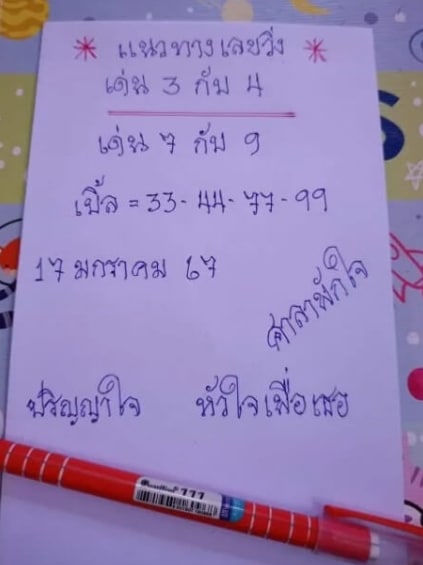 * แนวทางเลขวิ่ง *
เด่น 3 กับ 4
เด่น 7 กับ 9
เบิ้ล = 33-44-77-99
17 มกราคม 67
ศาลาพักใจ
ปริญญาใจ หัวใจเพื่อเธอ
777